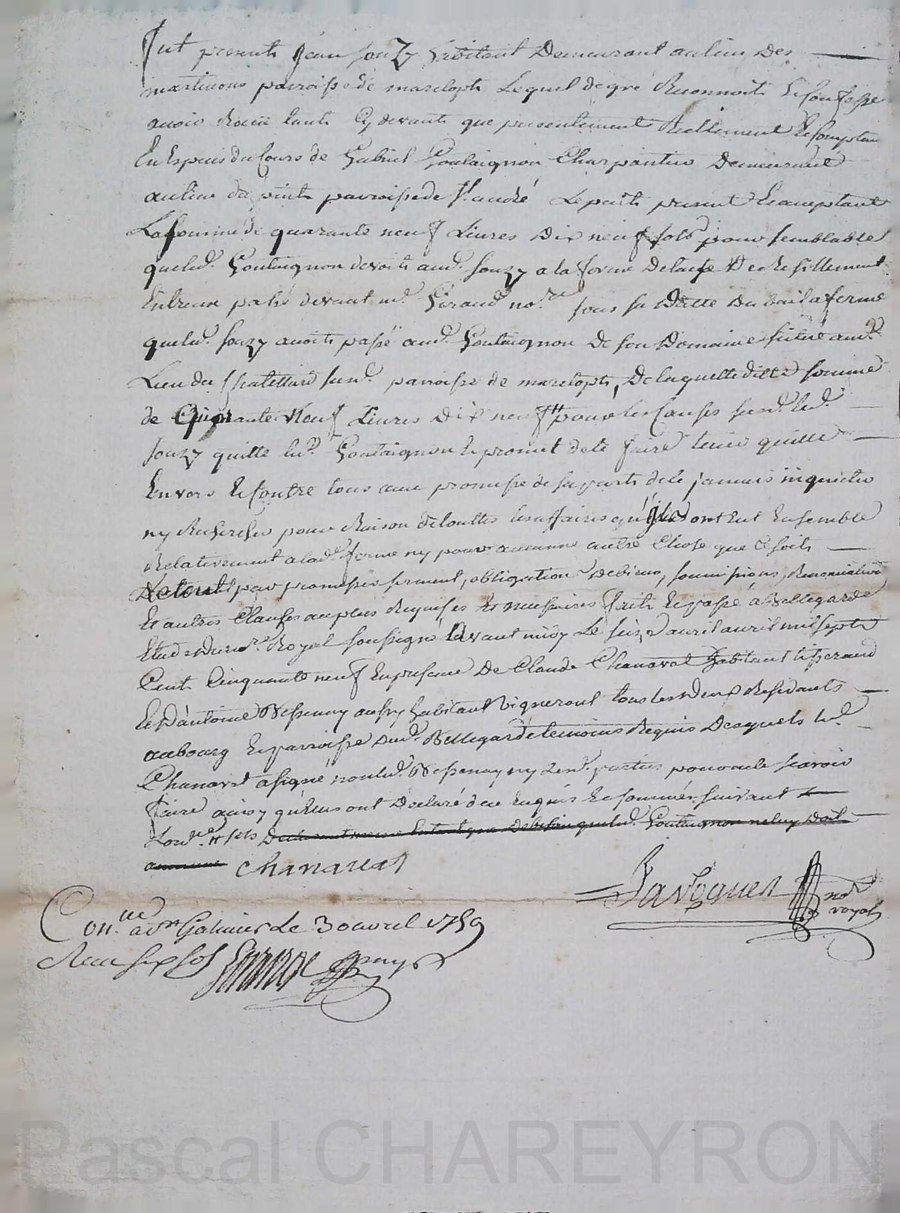 fut present Jean Jouzy habitant demeurant au lieu des
martinons parroisse de marclopt Lequel de gré Reconnoit Et Confesse
avoir Receu tant Cy devant que presentement Reellement Et Comptan
En Especes du Cours de Gabriel Goutaignon Charpentier demeurant
au lieu du parroisse de St. andré Le present Et acceptant
La somme de quarante neuf Livres dix neuf sols pour semblable
que led. Goutaignon devoit aud. Jouzy a la forme de
Entreux passé devant me. Giraud nore. sous sa datte du bail a ferme
que led. Jouzy avoit passé aud. Goutaignon de son Domaine situé aud.
Lieu du Chatellard susd. parroisse de marclopt, De laquelle ditte somme
de quarante Neuf Livres dix neuf s. pour les Causes susd. led.
Jouzy quitte led. Goutaignon Et promet de le faire tenir quitte
Envers Et Contre tous avec promesse de sa part de le jamais inquieter
ny Rechercher pour Raison de touttes les affaires qu'ils ont Eut Ensemble
Relativement a lad. ferme ny pour aucunne autre Chose que Ce soit
par promesses serment, obligation de biens, soumissions, Renonciations
Et autres Clauses au plus Requises Et necessaires fait Et passé a Bellegarde
Etude du nore. Royal soussigné avant midy Le seize avril mil sept
Cent Cinquante neuf En presence de Claude Chanavat habitant tisserand
Et d'antoine habitant Vigneront tous les deux Residants
au bourg Et parroisse dud. Bellegarde temoins Requis Desquels led.
Chanavat a signé non led. ny Lesd. parties pour ne le scavoir
faire ainsy qu'ils ont declaré de ce Enquis Et sommés suivant
Lordce. Goutaignon ne luy doit
Chanavat
Javoguea nore royal
Conlle. a St Galmier Le 30 avril 1759
Receu six sols
Pascal CHAREYRON